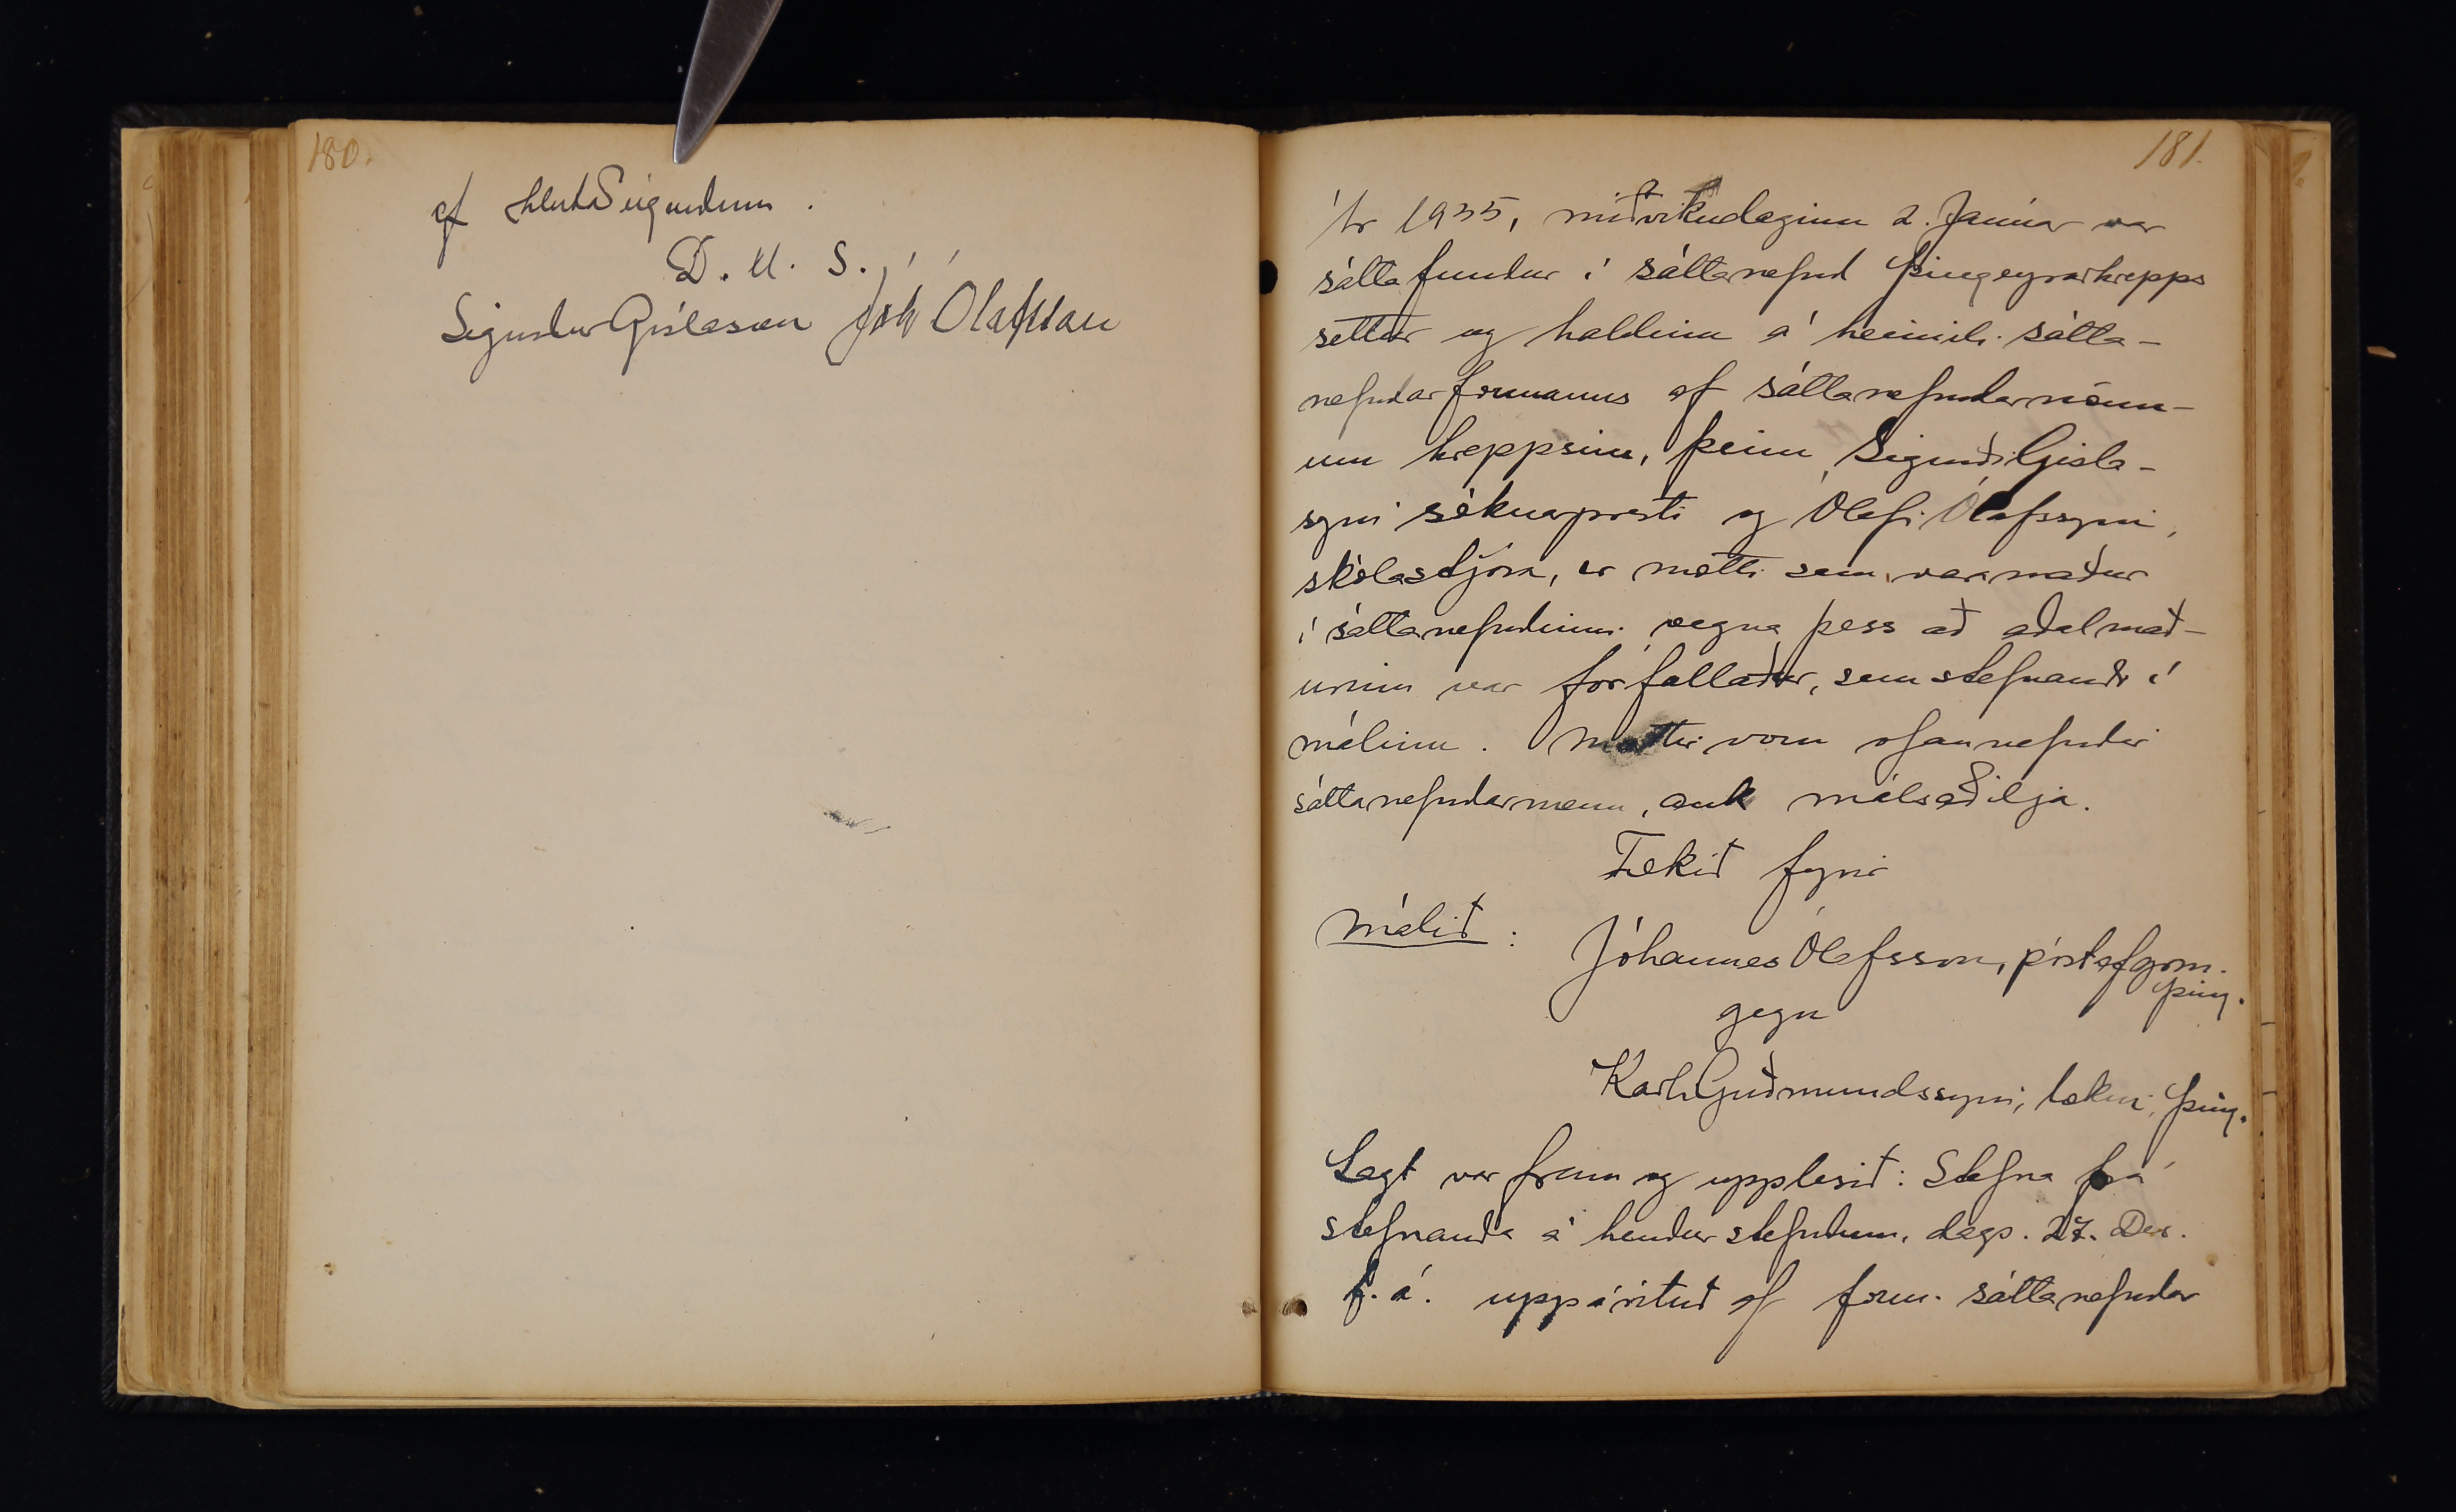 180.
af hluta Sigurdum.
D. U. S.
Sigurdur Gíslason Jóh Ólafsson
181.
Ár 1935, miðvikudaginn 2. Janúar var
sáttafundur í sáttanefnd Þingeyrarhrepps
settur og haldinn á heimili sátta-
nefndarformanns af sáttanefndarmönn-
um hreppsins, þeim Sigurði Gísla-
syni sóknarpresti og Ólafi Ólafssyni,
skólastjóra, er mætti sem varamaður
í sáttanefndinni vegna þess að aðalmað-
urinn var forfallaður, sem stefnandi í
málinu. Mættir voru ofannefndir
sáttanefndarmenn, auk málsaðilja.
Tekið fyrir
Málið:
Jóhannes Ólafsson, póstafgrm.
Þing.
gegn
Karli Guðmundssyni, lækni, Þing.
Lagt var fram og upplesið: Stefna frá
stefnanda á hendur stefndum, dags. 27. Des.
f. á. uppárituð af form. sáttanefndar